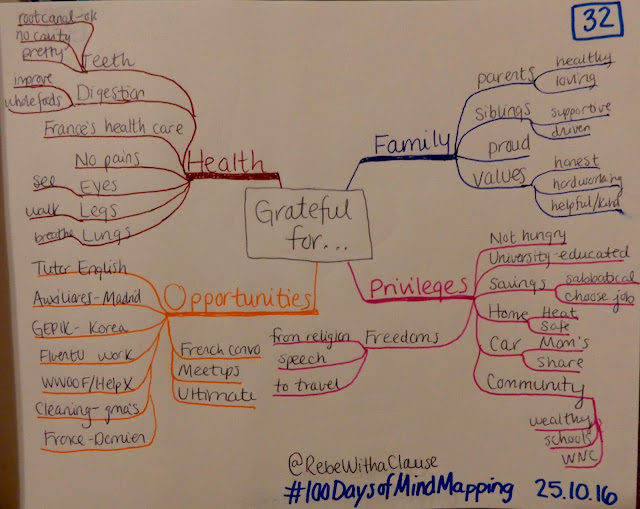 32
Grateful
for...
Health
Teeth
root canal-ok
no cavity
pretty
Digestion
improve
whole foods
France's health care
No pains
Eyes
see
Legs
walk
Lungs
breathe
Family
parents
healthy
loving
siblings
supportive
driven
proud
values
honest
hardworking
helpful/kind
Opportunities
Tutor English
Auxiliares-Madrid
GEPIK-Korea
FluentU work
WWOOF/HelpX
Cleaning-gma's
France-Damien
French convo
Meetups
Ultimate
Privileges
Not hungry
University-educated
Savings
sabbatical
choose job
Home
Heat
Safe
Car
Mom's
share
Community
wealthy
schools
WNC
Freedoms
from religion
speech
to travel
@RebeWithaClause
#100DaysofMindMapping 25.10.16